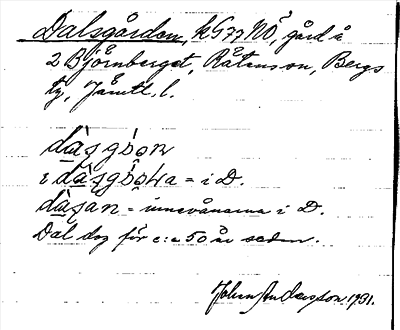 Dalsgården, kG77NÖ, gård å
2 Björnberget, Rätanson, Bergs
tg, Jämtl. l.
dàsgò̩n
i dàsgò̩ɳa = i D.
dàsan = innevånarna i D.
Dal dog för c:a 50 år sedan.
John Andersson 1931.